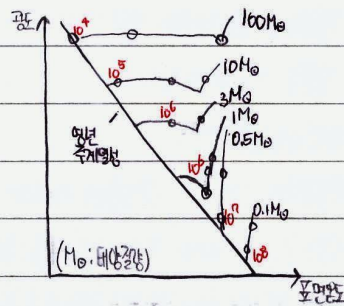 광도
10⁴
100M⊙
10⁵
10M⊙
10⁶
3M⊙
1M⊙
0.5M⊙
영년
주계열성
10⁶
10⁷
0.1M⊙
10⁸
(M⊙:태양질량)
표면온도